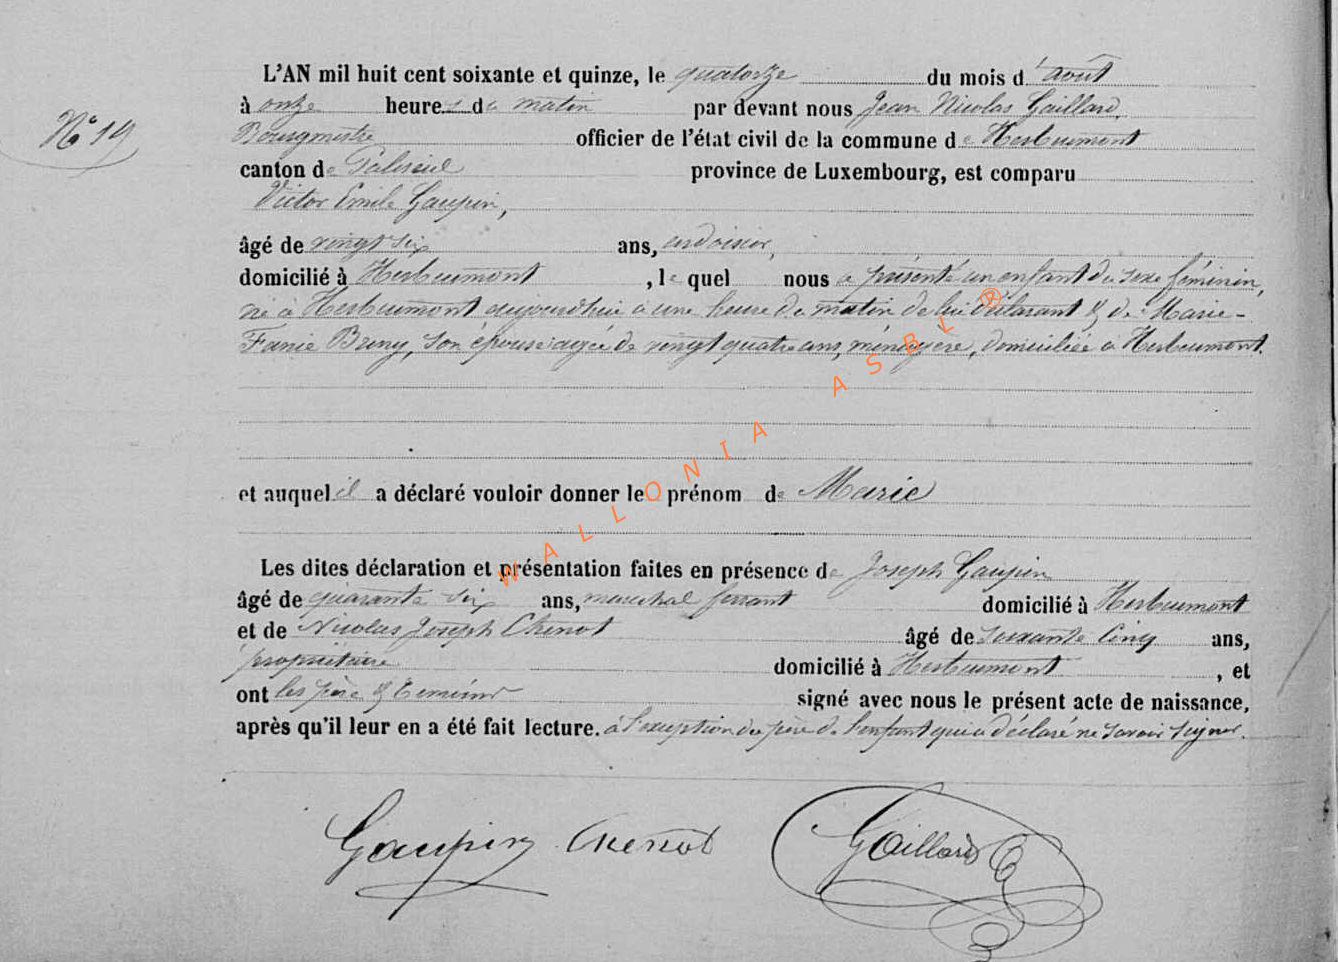 L'AN mil huit cent soixante et quinze, le quatorze du mois d'août
N° 19
à onze heures du matin par devant nous Jean Nicolas Gaillard,
Bourgmestre officier de l'état civil de la commune de Herbeumont
canton de Paliseul province de Luxembourg, est comparu
Victor Emile Gaupin,
âgé de vingt six ans, ardoisier,
domicilié à Herbeumont, lequel nous a présenté un enfant du sexe féminin,
né à Herbeumont aujourd'hui à une heure du matin de lui déclarant & de Marie-
Fanie Bruny, son épouse agée de vingt quatre ans, ménagère, domiciliée à Herbeumont.
et auquel il a déclaré vouloir donner le prénom de Marie
Les dites déclaration et présentation faites en présence de Joseph Gaupin
âgé de quarante six ans, maréchal ferrant domicilié à Herbeumont
et de Nicolas Joseph Chenot âgé de soixante cinq ans,
propriétaire domicilié à Herbeumont, et
ont les père & témoins signé avec nous le présent acte de naissance,
après qu'il leur en a été fait lecture. à l'exception du père de l'enfant qui a déclaré ne savoir signer.
Gaupin Chenot Gaillard
WALLONIA ASBL ®